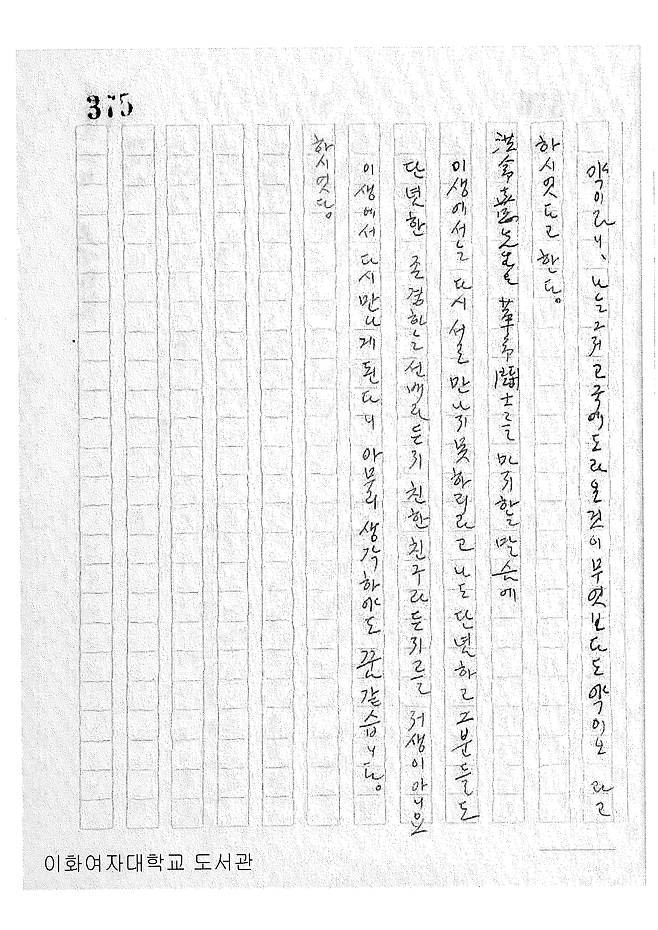 375
약이라니、나는그저고국에도라온것이무엇보다도약이오 라고
하시엇다고 한다。
洪命憙先生을 革命鬪士를 마지하는 말슴에
이생에서는 다시 서로 만나지못하리라고 나도 단념하고 그분들도
단념한 존경하는 선배라든지 친한 친구라든지를 저생이 아니요
이생에서 다시 만나게 된다니 아무리 생각하야도 꿈 같습니다。
하시엇다
이화여자대학교 도서관